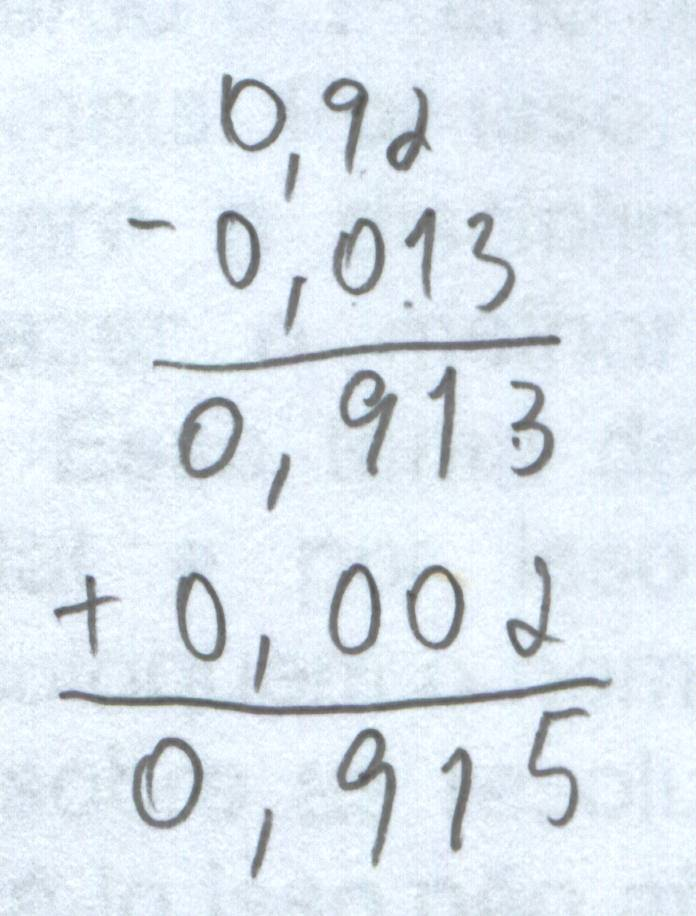 0,92
- 0,013
0,913
+ 0,002
0,915